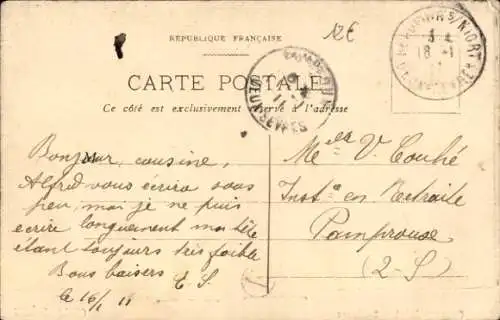 12€
RÉPUBLIQUE FRANÇAISE
CARTE POSTALE
Ce côté est exclusivement réservé à l'adresse
DEUX-SÈVRES
18 -1
M
Bonjour, cousine,
Alfred vous écrira sous
peu, moi je ne puis
écrire longuement ma tête
étant toujours très faible
Bons baisers
le 16/1 11
Melle V. Couhé
Instce en Retraite
Pamproux
(2-S)